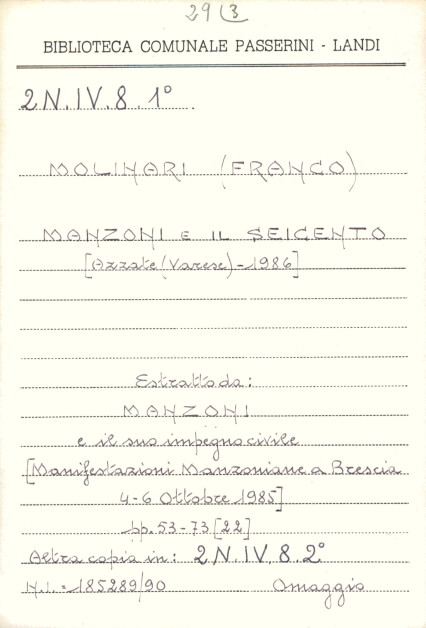 29 3
BIBLIOTECA COMUNALE PASSERINI - LANDI
2 N. IV. 8. 1°
MOLINARI (FRANCO)
MANZONI E IL SEICENTO
[Azzate (Varese) - 1986]
Estratto da:
MANZONI
e il suo impegno civile
[Manifestazioni Manzoniane a Brescia
4-6 Ottobre 1985]
pp. 53-73 [22]
Altra copia in: 2 N. IV. 8. 2°
N.I. = 185289/90 Omaggio